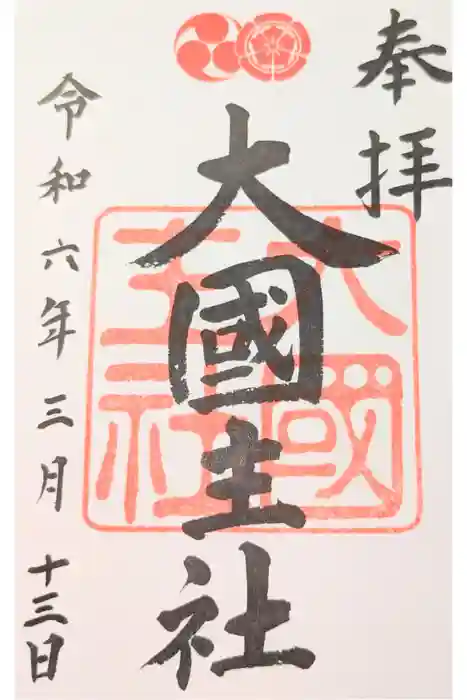 奉拝
大國主社
大國主社
令和六年三月十三日